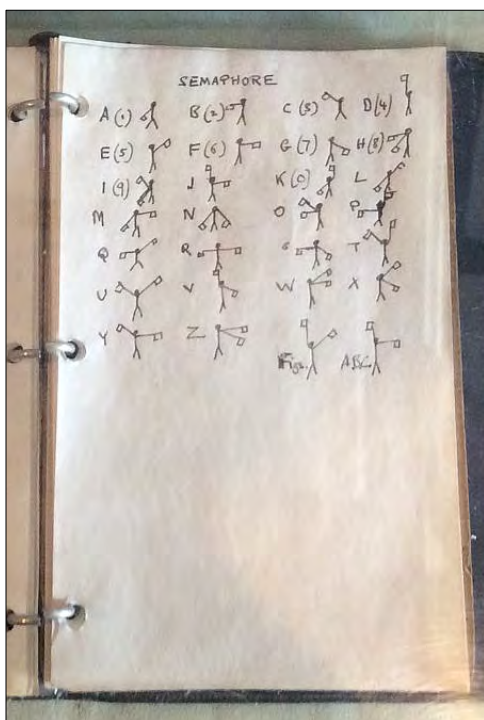 SEMAPHORE
A (1) B (2) C (3) D (4)
E (5) F (6) G (7) H (8)
I (9) J K (0) L
M N O P
Q R S T
U V W X
Y Z Figs. ABC